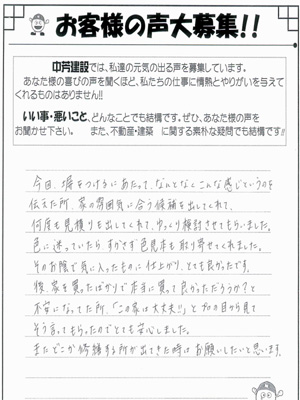 お客様の声大募集!!
中芳建設では、私達の元気の出る声を募集しています。
あなた様の喜びの声を聞くほど、私たちの仕事に情熱とやりがいを与えて
くれるものはありません!!
いい事・悪いこと、どんなことでも結構です。ぜひ、あなた様の声を
お聞かせ下さい。 また、不動産・建築 に関する素朴な疑問でも結構です!!
今回、塀をつけるにあたって、なんとなくこんな感じでというのを
伝えた所、家の雰囲気に合う候補を出してくれて、
何度も見積りも出してくれて、ゆっくり検討させてもらいました。
色に迷っていたら すかさず色見本も取り寄せてくれました。
そのお陰で気に入ったものに仕上がり、とても良かったです。
後、家を買ったばかりで本当に買って良かっただろうか?と
不安になってた所、「この家は大丈夫!!」とプロの目から見て
そう言ってもらったのでとても安心しました。
またどこか修繕する所が出てきた時はお願いしたいと思います。